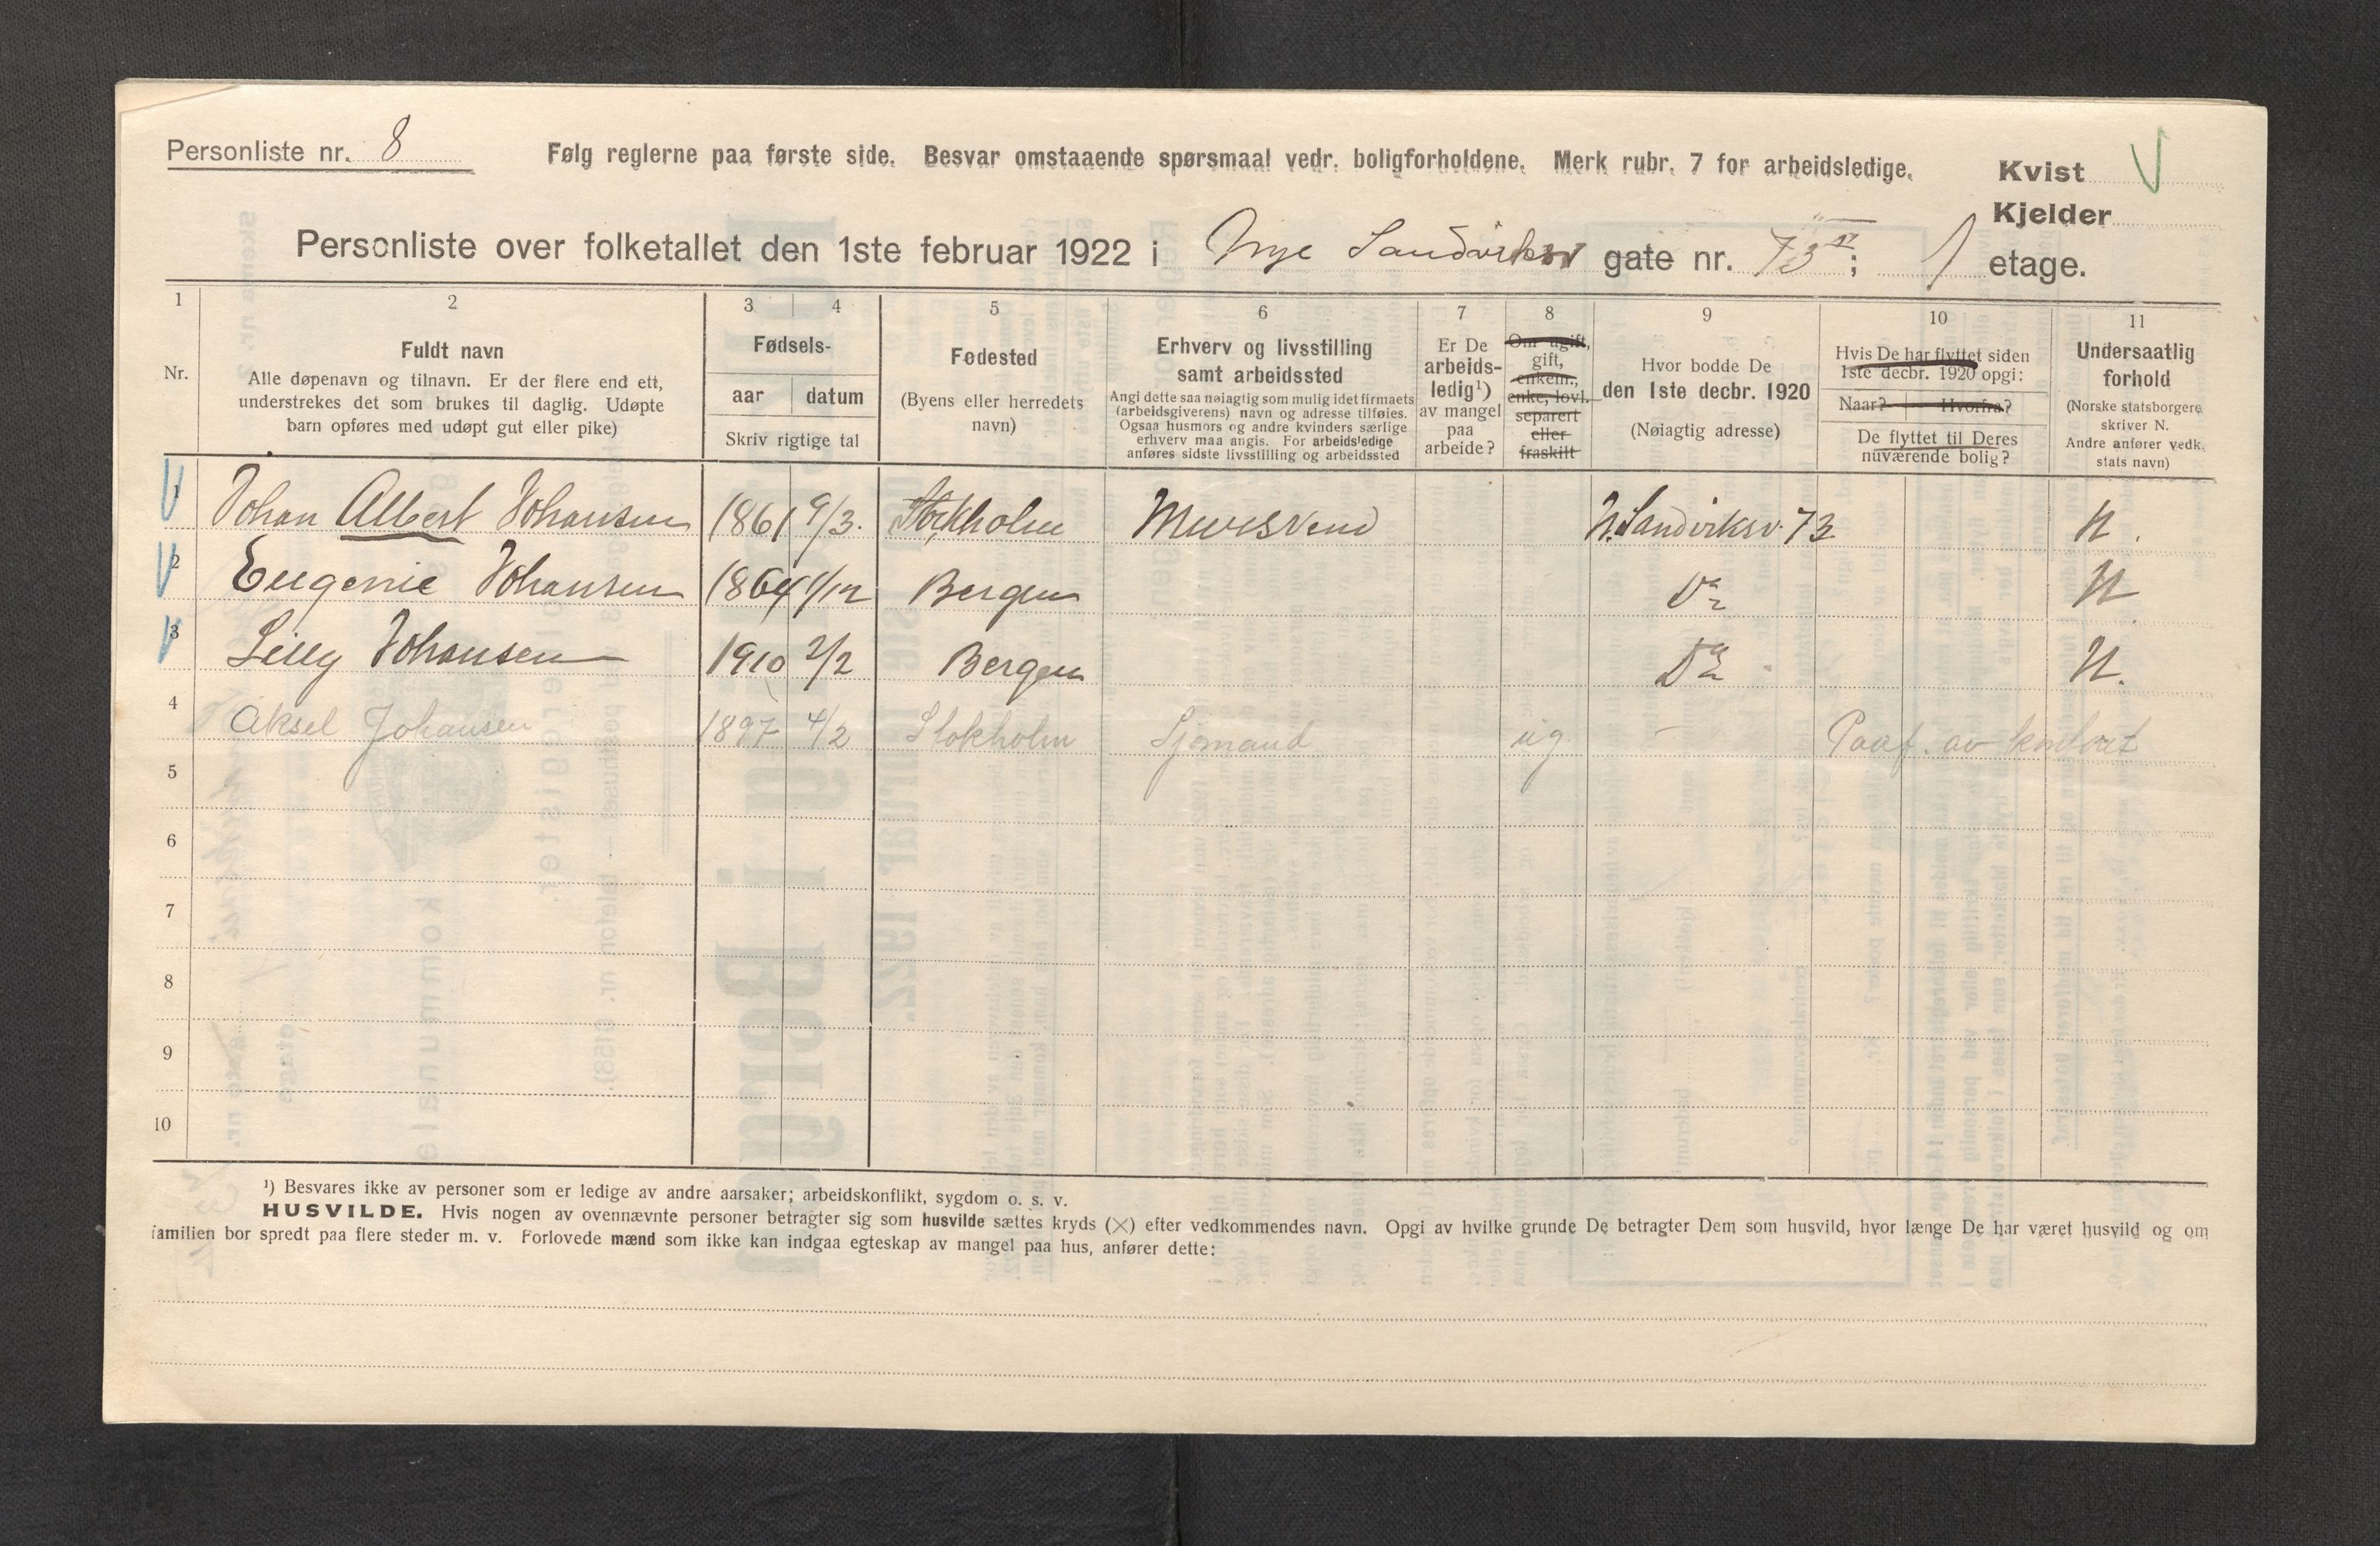 Personliste nr. 8
Følg reglerne paa første side. Besvar omstaaende spørsmaal vedr. boligforholdene. Merk rubr. 7 for arbeidsledige.
Kvist
Kjelder
Personliste over folketallet den 1ste februar 1922 i Nye Sandviksv gate nr. 73; 1 etage.
1 2 3 4 5 6 7 8 9 10 11
Nr.
Fuldt navn
Alle døpenavn og tilnavn. Er der flere end ett,
understrekes det som brukes til daglig. Udøpte
barn opføres med udøpt gut eller pike)
Fødsels-
aar datum
Skriv rigtige tal
Fødested
(Byens eller herredets
navn)
Erhverv og livsstilling
samt arbeidssted
Angi dette saa nøiagtig som mulig idet firmaets
(arbeidsgiverens) navn og adresse tilføies.
Ogsaa husmors og andre kvinders særlige
erhverv maa angis. For arbeidsledige
anføres sidste livsstilling og arbeidssted
Er De
arbeids-
ledig¹)
av mangel
paa
arbeide?
Om ugift,
gift,
enkem.,
enke, lovl.
separert
eller
fraskilt
Hvor bodde De
den 1ste decbr. 1920
(Nøiagtig adresse)
Hvis De har flyttet siden
1ste decbr. 1920 opgi:
Naar? Hvorfra?
De flyttet til Deres
nuværende bolig?
Undersaatlig
forhold
(Norske statsborgere
skriver N.
Andre anfører vedk.
stats navn)
1 Johan Albert Johansen 1861 9/3. Stokholm Mursvend N. Sandviksv. 73 N.
2 Eugenie Johansen 1864 1/12 Bergen Do N
3 Lilly Johansen 1910 2/2 Bergen Do N.
4 Aksel Johansen 1897 4/2 Stokholm Sjømand ug — Paaf. av kontoret
5
6
7
8
9
10
¹) Besvares ikke av personer som er ledige av andre aarsaker; arbeidskonflikt, sygdom o. s. v.
HUSVILDE. Hvis nogen av ovennævnte personer betragter sig som husvilde sættes kryds (×) efter vedkommendes navn. Opgi av hvilke grunde De betragter Dem som husvild, hvor længe De har været husvild og om
familien bor spredt paa flere steder m. v. Forlovede mænd som ikke kan indgaa egteskap av mangel paa hus, anfører dette: